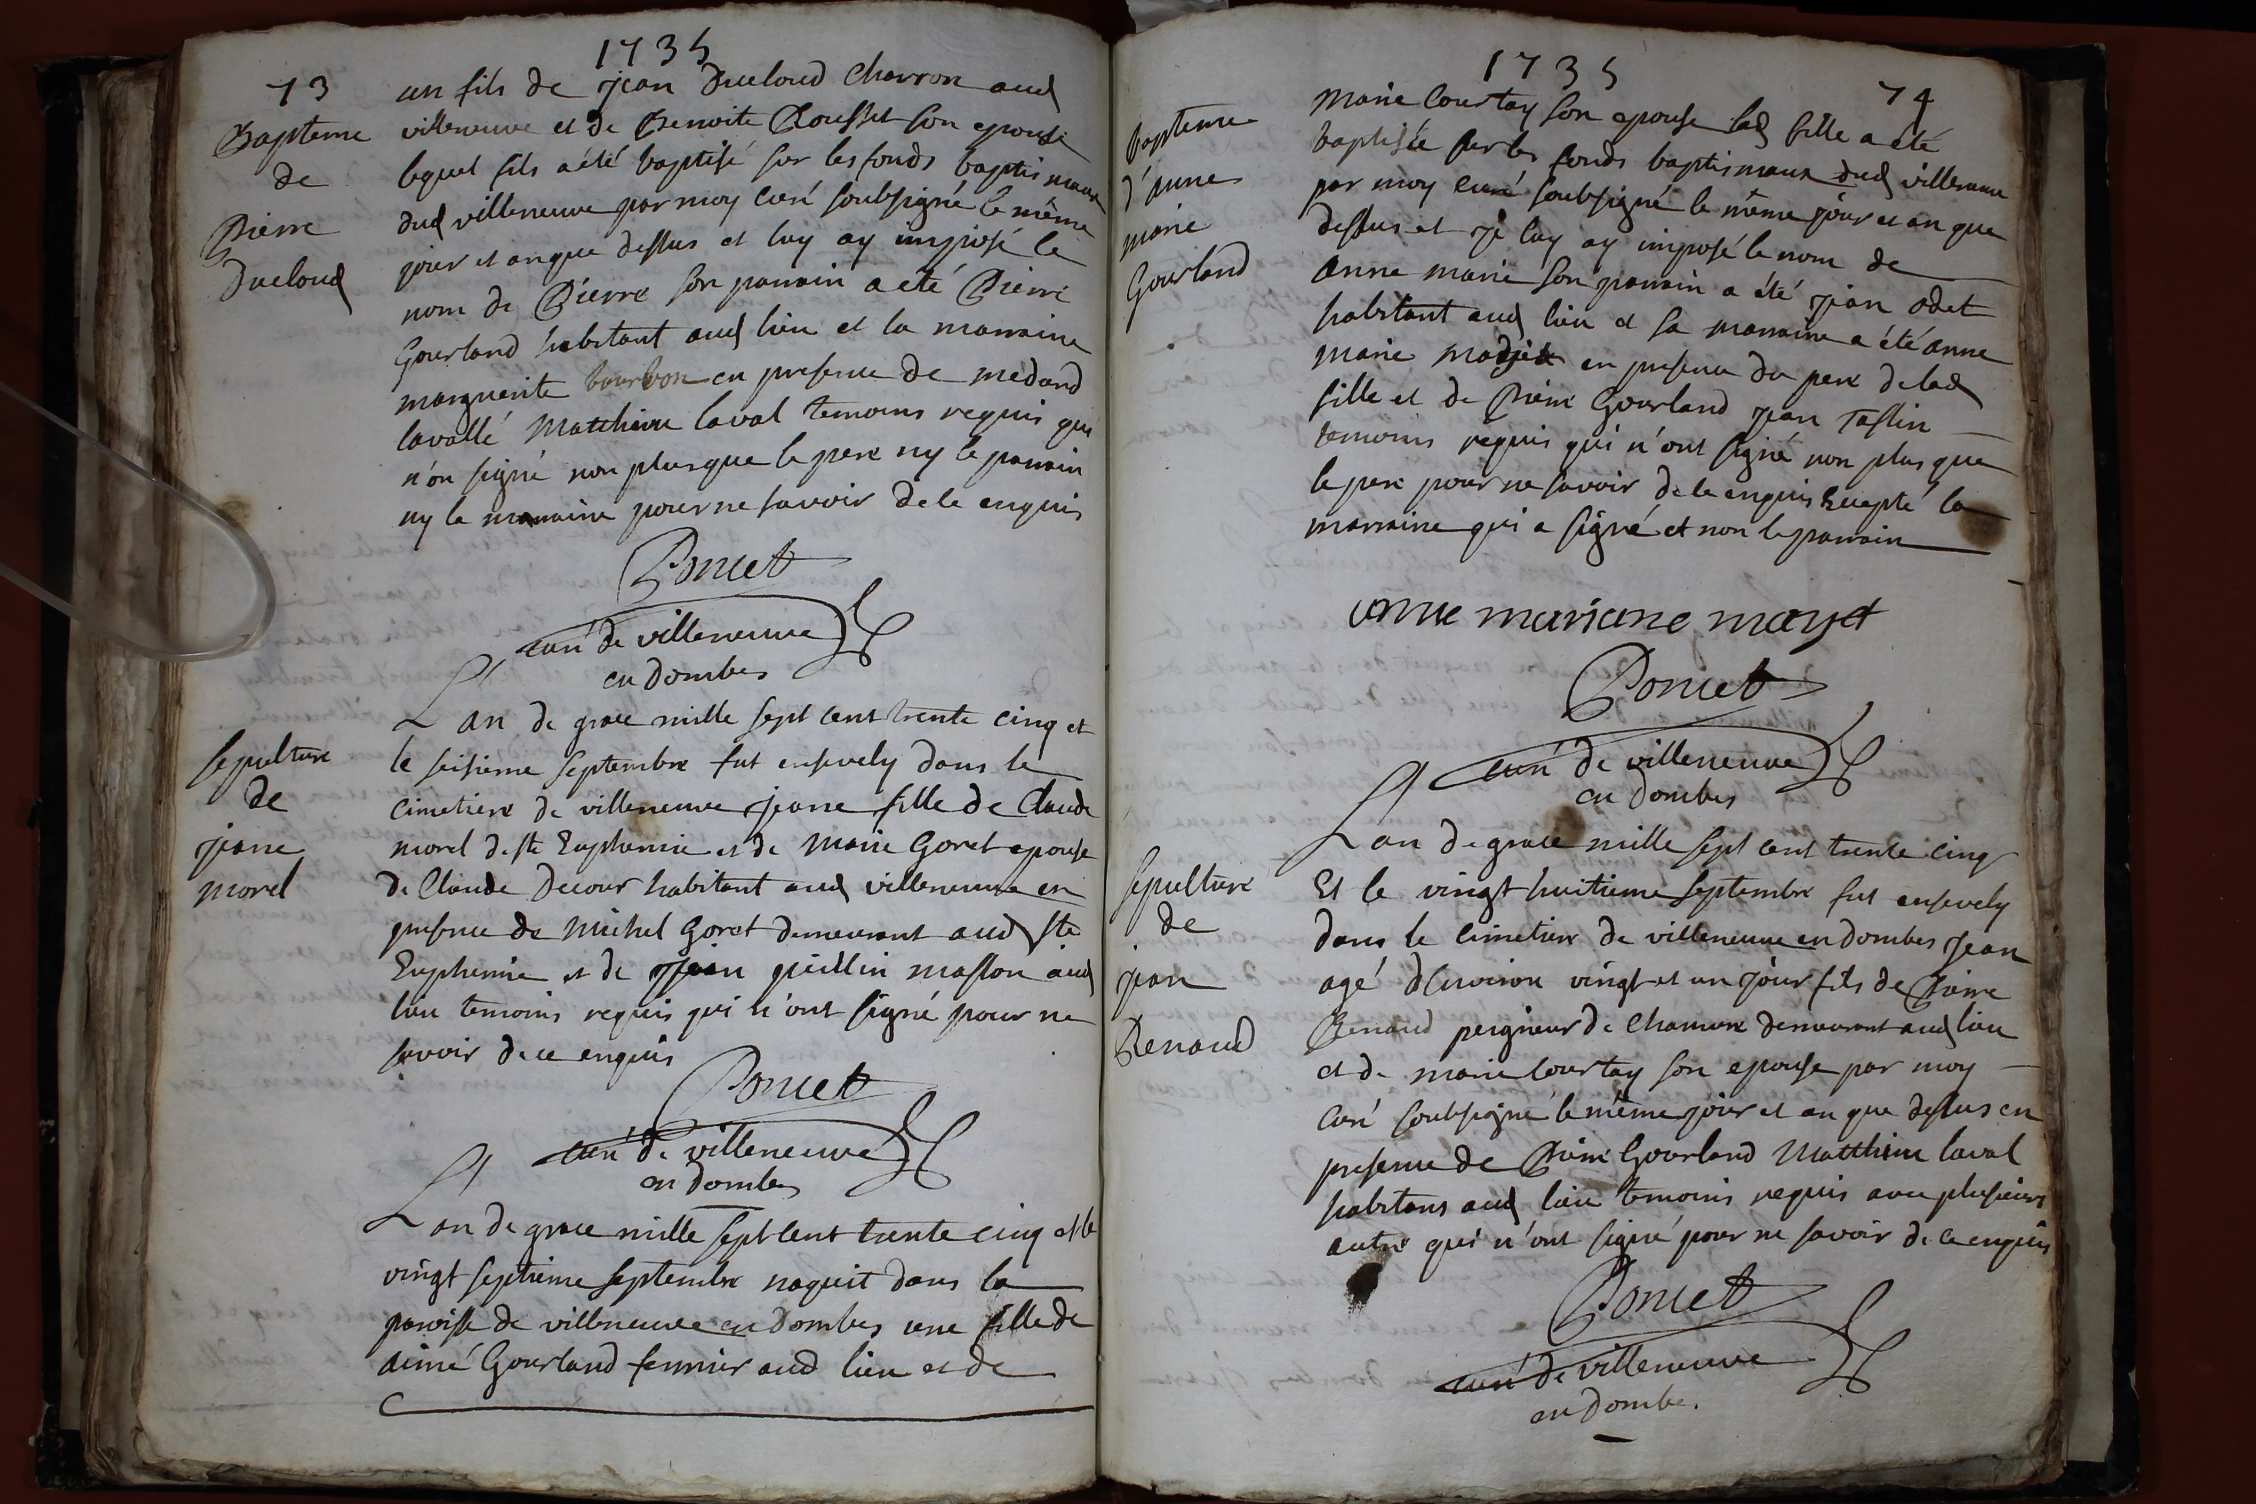 1735
73
Bapteme
de
Pierre
Ducloud
un fils de jean Ducloud Charron aud
villeneuve et de Benoite Rousset son epouse
lequel fils a été baptisé sur les fonds baptismaux
dud villeneuve par moy curé soubsigné le même
jour et an que dessus et luy ay imposé le
nom de Pierre son parrain a été Pierre
Gourland habitant aud lieu et la marraine
marguerite bourbon en presence de medard
lavallé Matthieu laval temoins requis qui
n'on signé non plus que le pere ny le parrain
ny la marraine pour ne savoir de le enquis
Poncet
curé de villeneuve
en Dombes
sepulture
de
jeane
morel
L'an de grace mille sept cent trente cinq et
le seisieme septembre fut ensevely dans le
cimetiere de villeneuve jeane fille de Claude
morel de ste Euphemie et de Marie Goret epouse
de Claude Decour habitant aud villeneuve en
presence de Michel Goret demeurant aud ste
Euphemie et de jean guillin masson aud
lieu temoins requis qui n'ont signé pour ne
savoir de ce enquis
Poncet
curé de villeneuve
en Dombes
L'an de grace mille sept cent trente cinq et le
vingt septieme septembre naquit dans la
paroisse de villeneuve en Dombes une fille de
aimé Gourland fermier aud lieu et de
1735
74
bapteme
d'anne
marie
Gourland
Marie Courtay son epouse lad fille a été
baptisée sur les fonds baptismaux dud villeneuve
par moy curé soubsigné le même jour et an que
dessus et je luy ay imposé le nom de
anne marie son parrain a été jean odet
habitant aud lieu et sa marraine a été anne
marie en presence du pere de lad
fille et de Pierre Gourland jean Taslin
temoins requis qui n'ont signé non plus que
le pere pour ne savoir de le enquis Excepté la
marraine qui a signé et non le parrain
anne mariane mayet
Poncet
curé de villeneuve
en Dombes
sepulture
de
jean
Renaud
L'an de grace mille sept cent trente cinq
Et le vingt huitieme septembre fut ensevely
dans le cimetiere de villeneuve en dombes jean
agé d'Environ vingt et un jour fils de Pierre
Renaud peigneur de Chamvre demeurant aud lieu
et de marie Courtay son epouse par moy
curé soubsigné le même jour et an que dessus en
presence de Pierre Gourland Matthieu laval
habitans aud lieu temoins requis avec plusieurs
autre qui n'ont signé pour ne savoir de ce enquis
Poncet
curé de villeneuve
en Dombe.